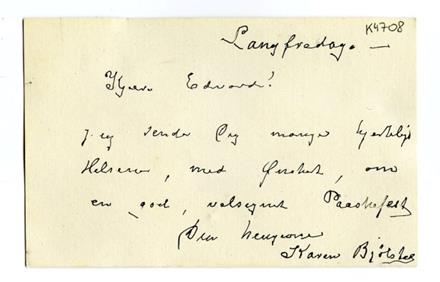 K4708
Langfredag. —
Kjære Edvard!
Jeg sender Dig mange hjertelige
Hilsener, med Ønsket, om
en god, velsignet Paaskefest
Din hengivne
Karen Bjølstad